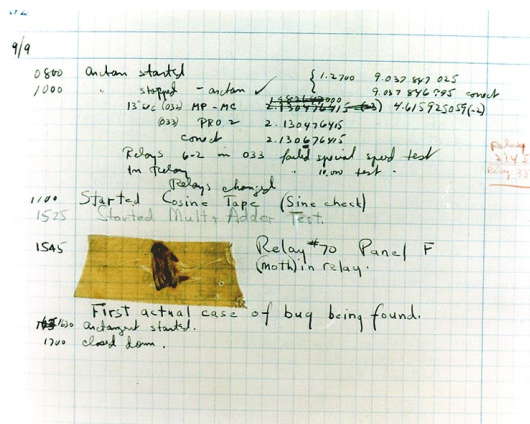 9/9
0800 antan started { 1.2700 9.037 847 025
1000 " stopped - antan ✓ 9.037 846 995 correct
13"uc (032) MP - MC 2.130476415 (-3) 4.615925059(-2)
(033) PRO 2 2.130476415
correct 2.130676415
Relays 6-2 in 033 failed special speed test
in relay " 10,000 test.
Relays changed
1100 Started Cosine Tape (Sine check)
1525 Started Mult + Adder Test.
1545 Relay #70 Panel F
(moth) in relay.
First actual case of bug being found.
1630 antangent started.
1700 closed down.